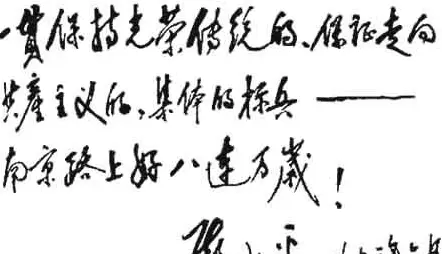 一贯保持光荣传统的、保证走向
共产主义的,集体的标兵——
南京路上好八连万岁!